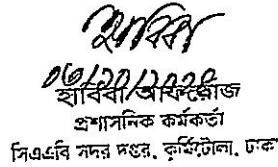 হাবিবা
০৬/১০/২০২৪
হাবিবা আফরোজ
প্রশাসনিক কর্মকর্তা
সিএএবি সদর দপ্তর, কুর্মিটোলা, ঢাকা